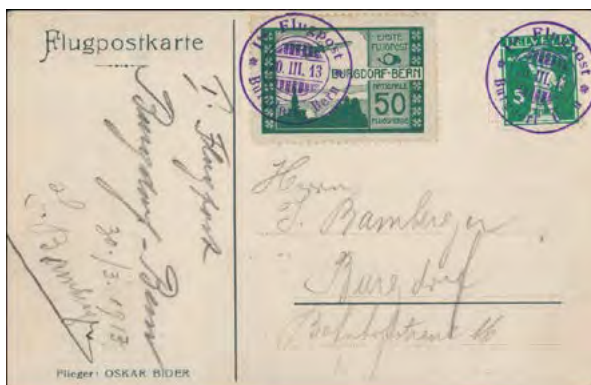 Flugpostkarte
I. Flugpost
Burgdorf-Bern
30./3. 1913
Bamberger
Flieger: OSKAR BIDER
I. Flugpost
30. III. 13
Bern
ERSTE
FLUGPOST
BURGDORF-BERN
NATIONALE
50
FLUGSPENDE
HELVETIA
5
Flugpost
III. 13
Bern
Herrn
J. Bamberger
Burgdorf
Bahnhofstrasse 16